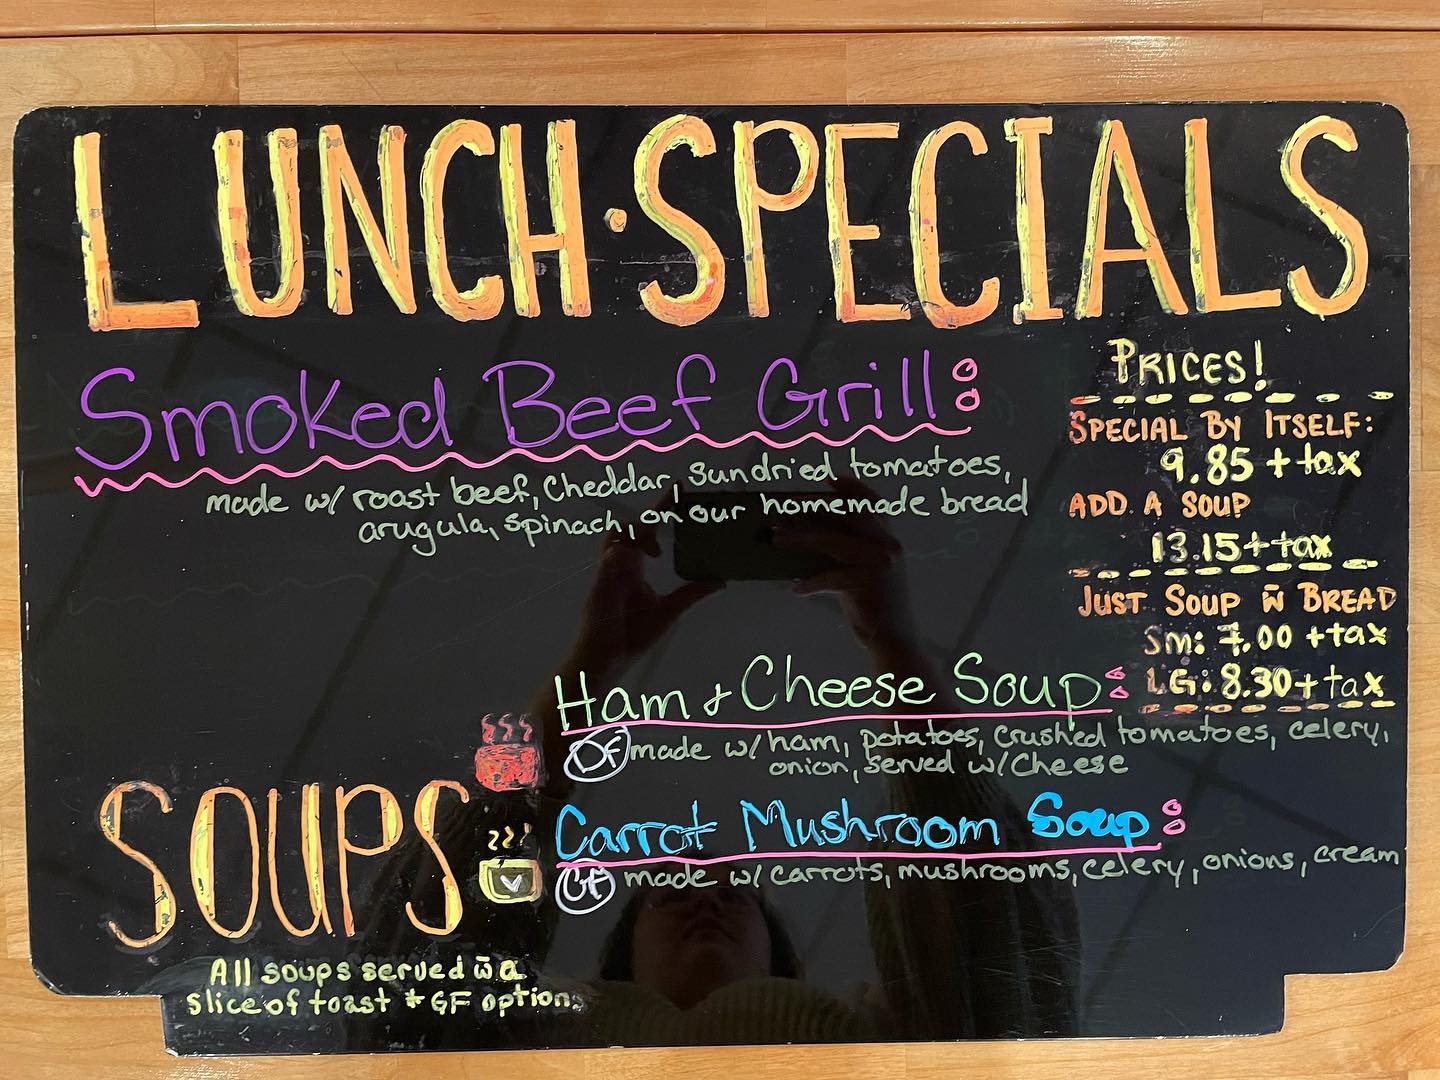 LUNCH·SPECIALS
Smoked Beef Grill:
made w/ roast beef, Cheddar, sundried tomatoes,
arugula, spinach, on our homemade bread
PRICES!
SPECIAL BY ITSELF:
9.85 + tax
ADD A SOUP
13.15 + tax
JUST SOUP w̄ BREAD
SM: 7.00 + tax
LG: 8.30 + tax
SOUPS
Ham + Cheese Soup:
DF made w/ ham, potatoes, crushed tomatoes, celery,
onion, served w/ Cheese
Carrot Mushroom Soup:
GF made w/ carrots, mushrooms, celery, onions, cream
All soups served w̄ a
slice of toast * GF options